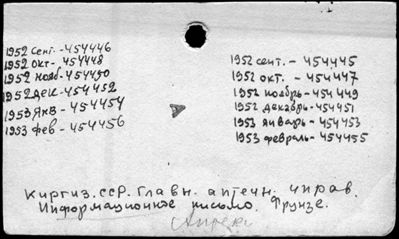 1952 сент. - 454446
1952 окт - 454448
1952 нояб - 454450
1952 дек - 454452
1953 янв - 454454
1953 фев. - 454456
1952 сент. - 454445
1952 окт. - 454447
1952 ноябрь - 454449
1952 декабрь - 454451
1953 январь - 454453
1953 февраль - 454455
Киргиз. ССР. Главн. аптечн. управ.
Информационное письмо. Фрунзе.